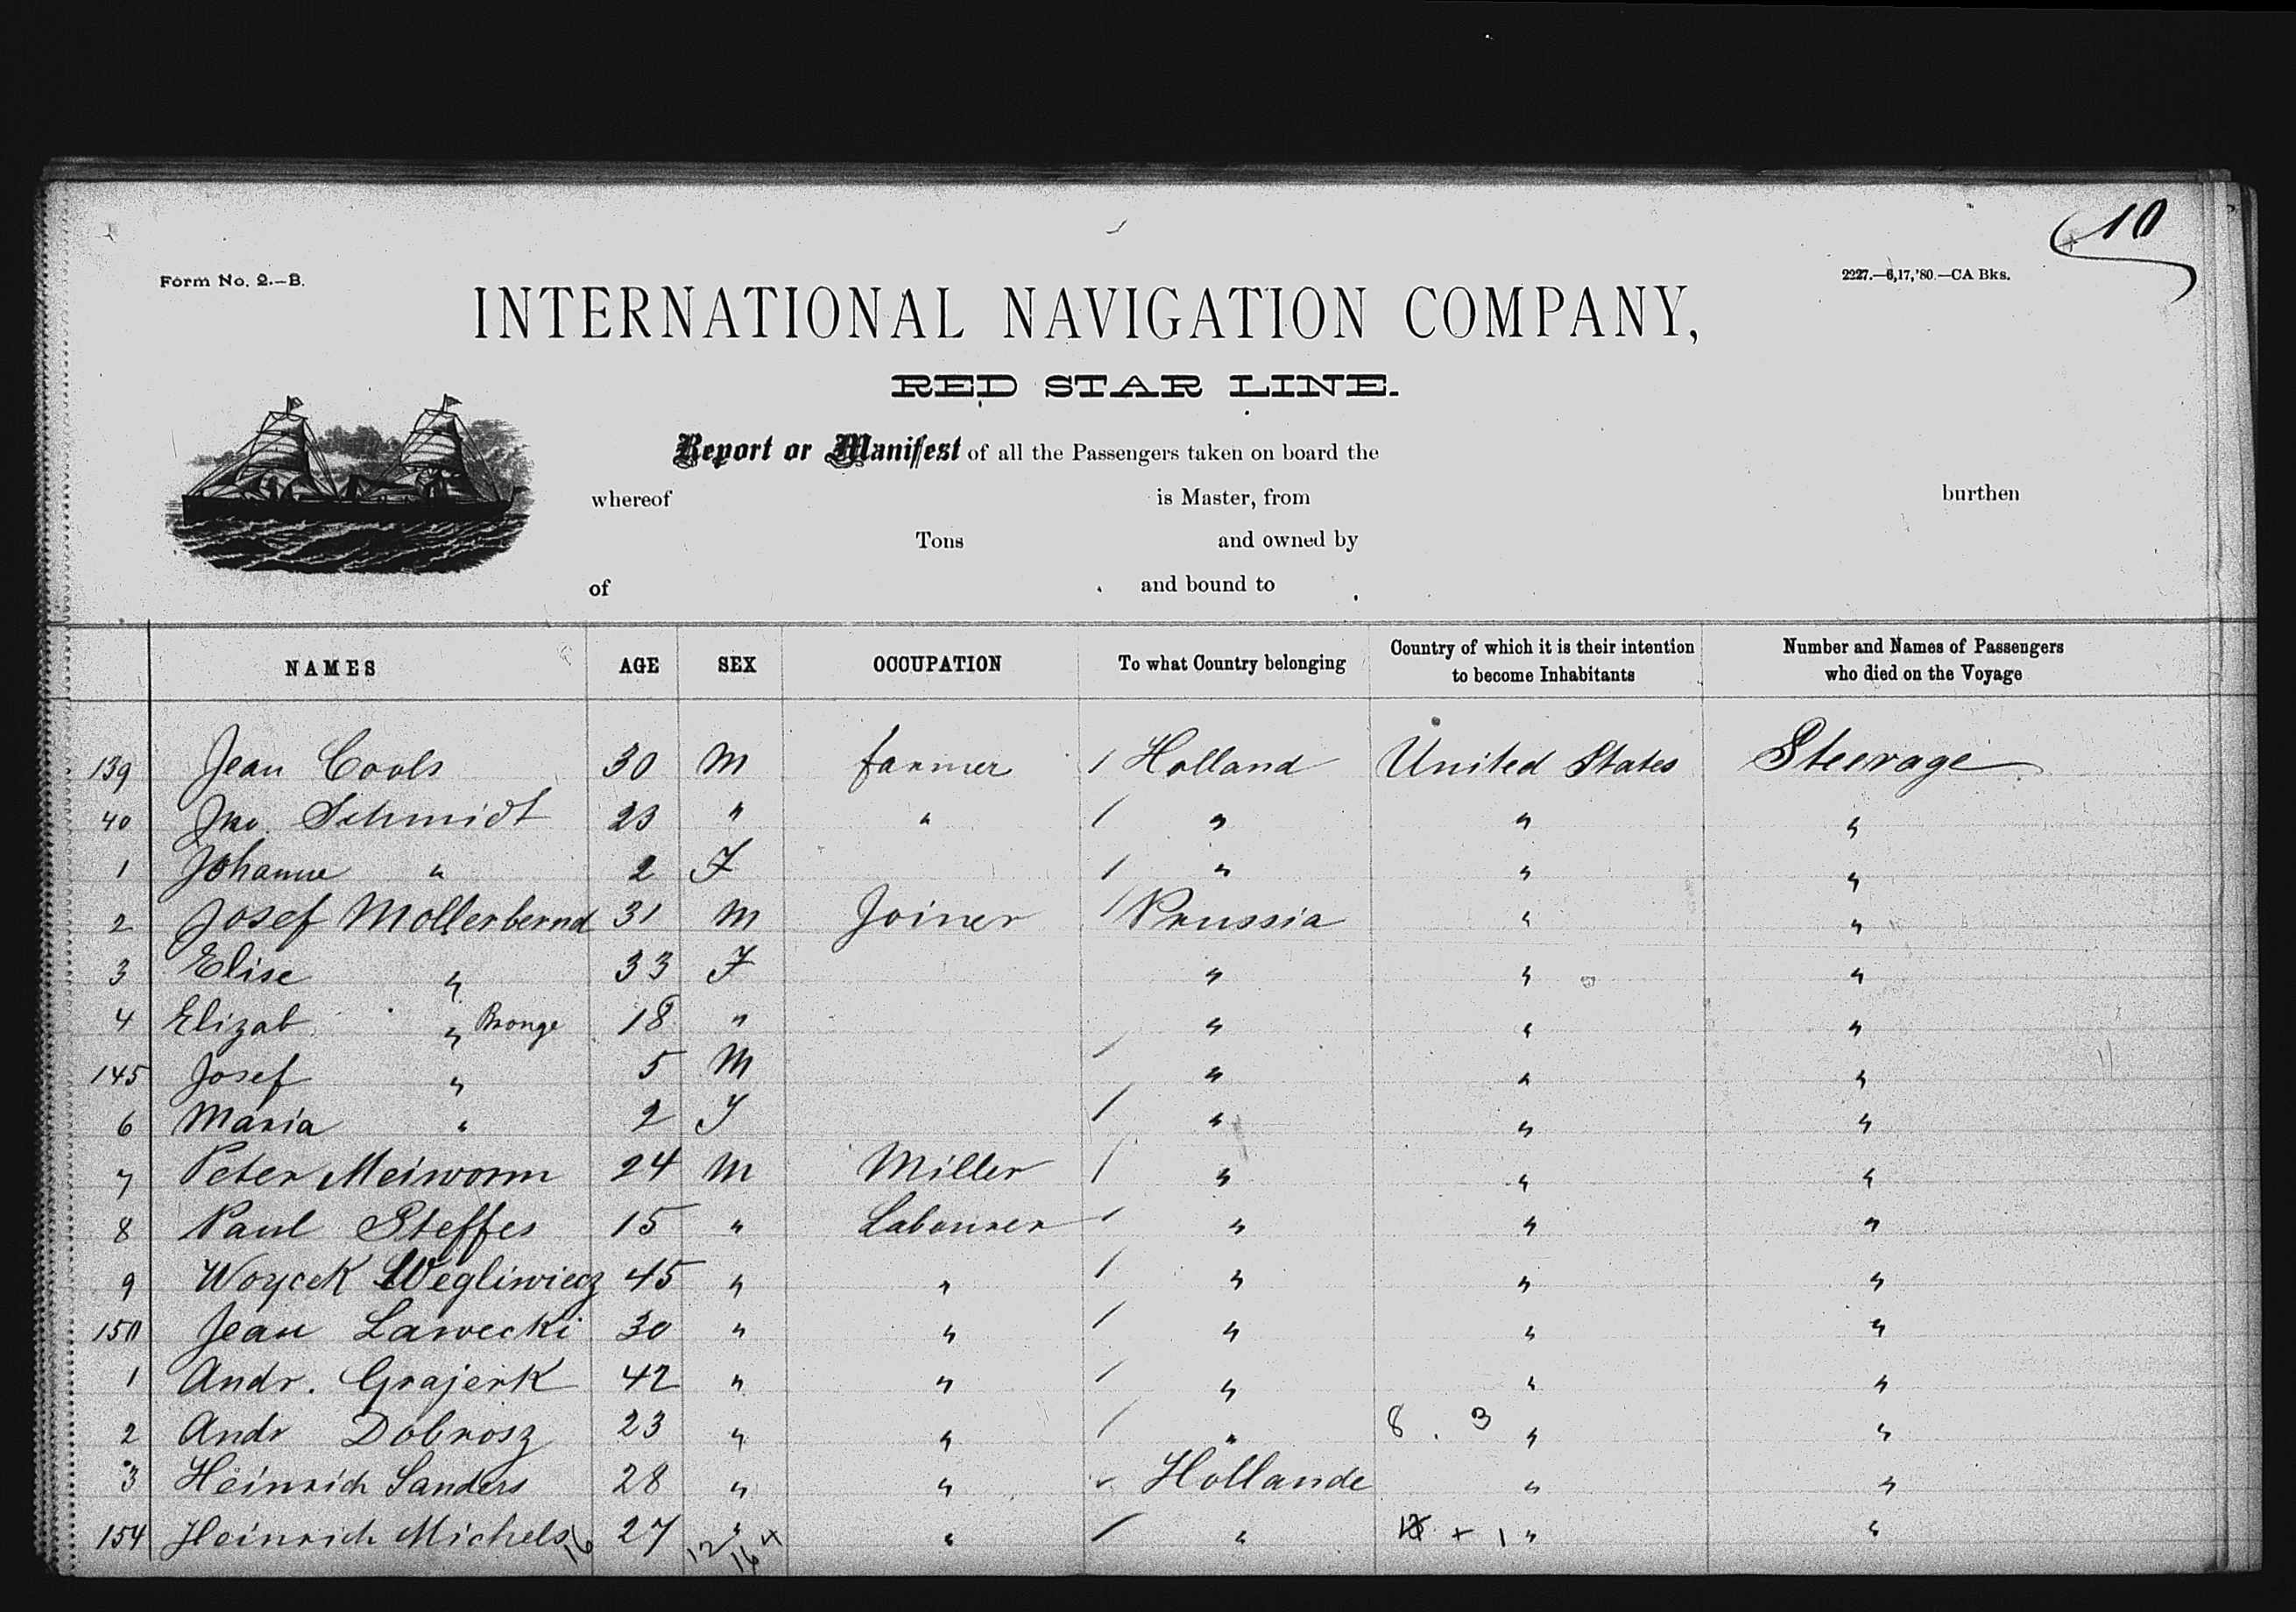 10
Form No. 2.—B.
2227.—6,17,'80.—CA Bks.
INTERNATIONAL NAVIGATION COMPANY,
RED STAR LINE.
Report or Manifest of all the Passengers taken on board the
whereof is Master, from burthen
Tons and owned by
of and bound to
NAMES AGE SEX OCCUPATION To what Country belonging Country of which it is their intention to become Inhabitants Number and Names of Passengers who died on the Voyage
139 Jean Cools 30 M farmer / Holland United States Steerage
40 Jno. Schmidt 23 " " / " " "
1 Johanne " 2 F / " " "
2 Josef Mollerbernd 31 M Joiner / Prussia " "
3 Elise " 33 F " " "
4 Elizab. " Bronge 18 " " " "
145 Josef " 5 M / " " "
6 Maria " 2 F / " " "
7 Peter Meiworm 24 M Miller / " " "
8 Paul Steffes 15 " Labourer / " " "
9 Woycek Wegliwiecz 45 " " / " " "
150 Jean Lawecki 30 " " / " " "
1 Andr. Grajerk 42 " " / " " "
2 Andr Dobrosz 23 " " / " 8 . 3 " "
3 Heinrich Sanders 28 " " Hollande " "
154 Heinrich Michels 16 27 " 12 16 4 " / " + 1 " "